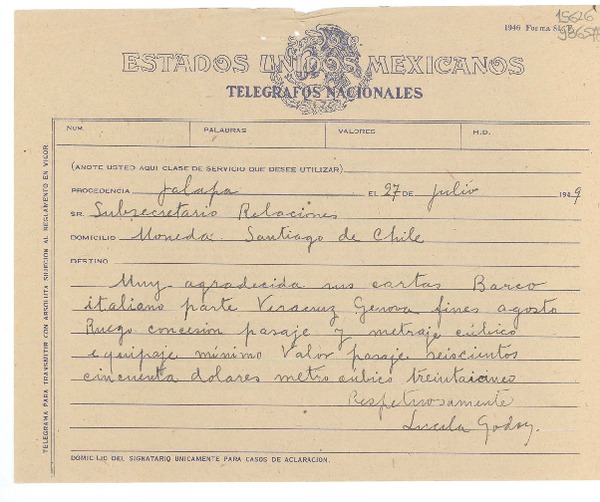 15626
1946 Forma S
ESTADOS UNIDOS MEXICANOS
TELEGRAFOS NACIONALES
NUM. PALABRAS VALORES H.D.
(ANOTE USTED AQUI CLASE DE SERVICIO QUE DESEE UTILIZAR)
PROCEDENCIA Jalapa EL 27 DE Julio 1949
SR. Subsecretario Relaciones
DOMICILIO Moneda. Santiago de Chile
DESTINO
Muy agradecida sus cartas Barco
italiano parte Veracruz Genova fines agosto
Ruego concesion pasaje y metraje cúbico
equipaje mínimo Valor pasaje seiscientos
cincuenta dolares metro cúbico treintaicinco
Respetuosamente
Lucila Godoy.
DOMICILIO DEL SIGNATARIO UNICAMENTE PARA CASOS DE ACLARACION.
TELEGRAMA PARA TRANSMITIR CON ABSOLUTA SUJECION AL REGLAMENTO EN VIGOR